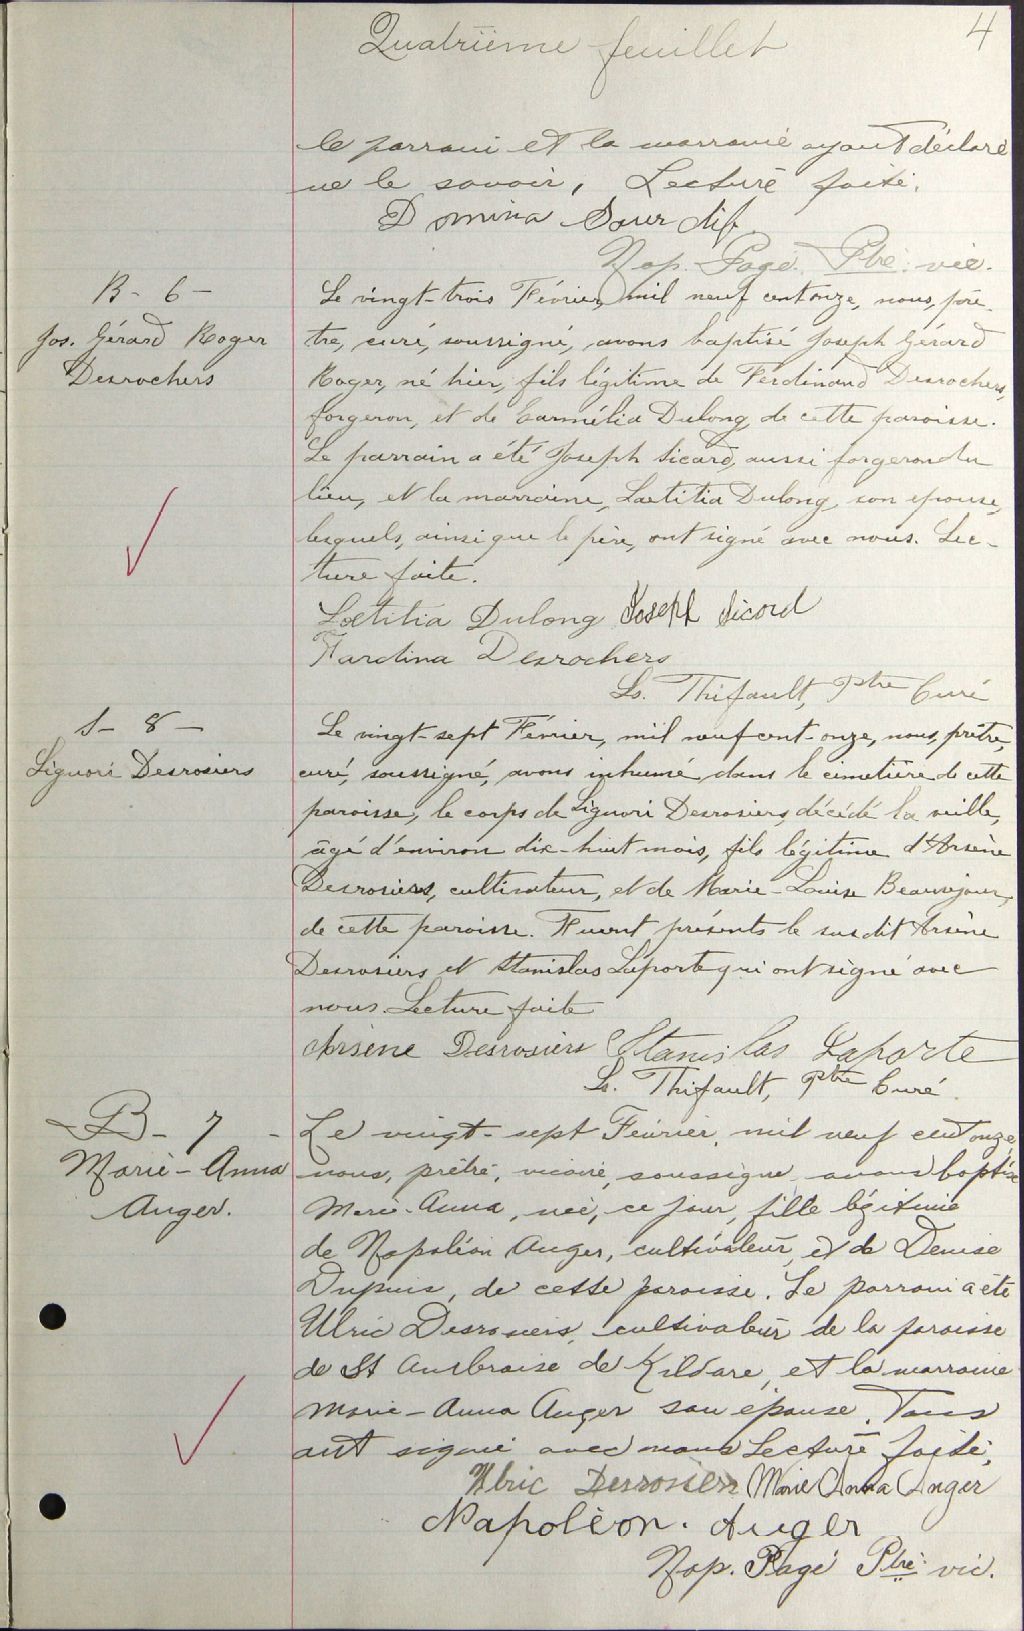 Quatrième feuillet
4
le parrain et la marraine ayant déclaré
ne le savoir, Lecture faite.
Domina Sourdif
Nap. Pagé. Ptre. vic.
B- 6 -
Jos. Gérard Roger
Desrochers
Le vingt-trois Février, mil neuf cent onze, nous, prê-
tre, curé, soussigné, avons baptisé Joseph Gérard
Roger, né hier, fils légitime de Ferdinand Desrochers,
forgeron, et de Carmélia Dulong, de cette paroisse.
Le parrain a été Joseph Sicard, aussi forgeron du
lieu, et la marraine, Laetitia Dulong, son épouse,
lesquels, ainsi que le père, ont signé avec nous. Lec-
ture faite.
Lœtitia Dulong Joseph Sicard
Fardina Desrochers
Ls. Thifault, Ptre Curé
S- 8 -
Liguori Desrosiers
Le vingt-sept Février, mil neuf cent-onze, nous, prêtre,
curé, soussigné, avons inhumé dans le cimetière de cette
paroisse, le corps de Liguori Desrosiers, décédé la veille,
âgé d'environ dix-huit mois, fils légitime d'Arsène
Desrosiers, cultivateur, et de Marie-Louise Beauséjour,
de cette paroisse. Furent présents le susdit Arsène
Desrosiers et Stanislas Laporte qui ont signé avec
nous. Lecture faite
Arsène Desrosiers Stanislas Laporte
Ls. Thifault, Ptre Curé.
B- 7 -
Marie-Anna
Auger.
Le vingt-sept Février, mil neuf cent onze,
nous, prêtre, vicaire, soussigné avons baptisé
Marie-Anna, née, ce jour, fille légitime
de Napoléon Auger, cultivateur, et de Denise
Dupuis, de cette paroisse. Le parrain a été
Ulric Desrosiers, cultivateur de la paroisse
de St Ambroise de Kildare, et la marraine
Marie-Anna Auger son épouse. Tous
ont signé avec nous Lecture faite.
Ulric Desrosiers Marie Anna Auger
Napoléon. Auger
Nap. Pagé Ptre. vic.